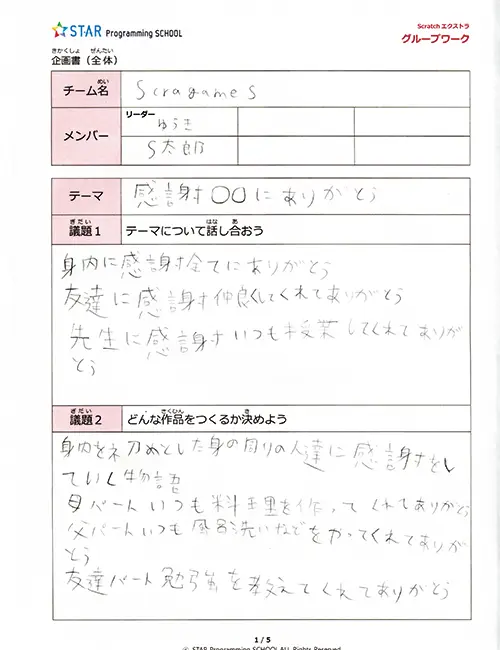 STAR Programming SCHOOL
Scratch エクストラ
グループワーク
きかくしょ ぜんたい
企画書（全体）
めい
チーム名
Scragames
メンバー
リーダー
ゆうき
S太郎
テーマ
感謝〇〇にありがとう
ぎだい
議題1
はな あ
テーマについて話し合おう
身内に感謝全てにありがとう
友達に感謝仲良くしてくれてありがとう
先生に感謝いつも授業してくれてありが
とう
ぎだい
議題2
さくひん き
どんな作品をつくるか決めよう
身内を初めとした身の周りの人達に感謝をし
ていく物語
母パートいつも料理を作ってくれてありがとう
父パートいつも風呂洗いなどをやってくれてありが
とう
友達パート勉強を教えてくれてありがとう
1 / 5
© STAR Programming SCHOOL ALL Rights Reserved.